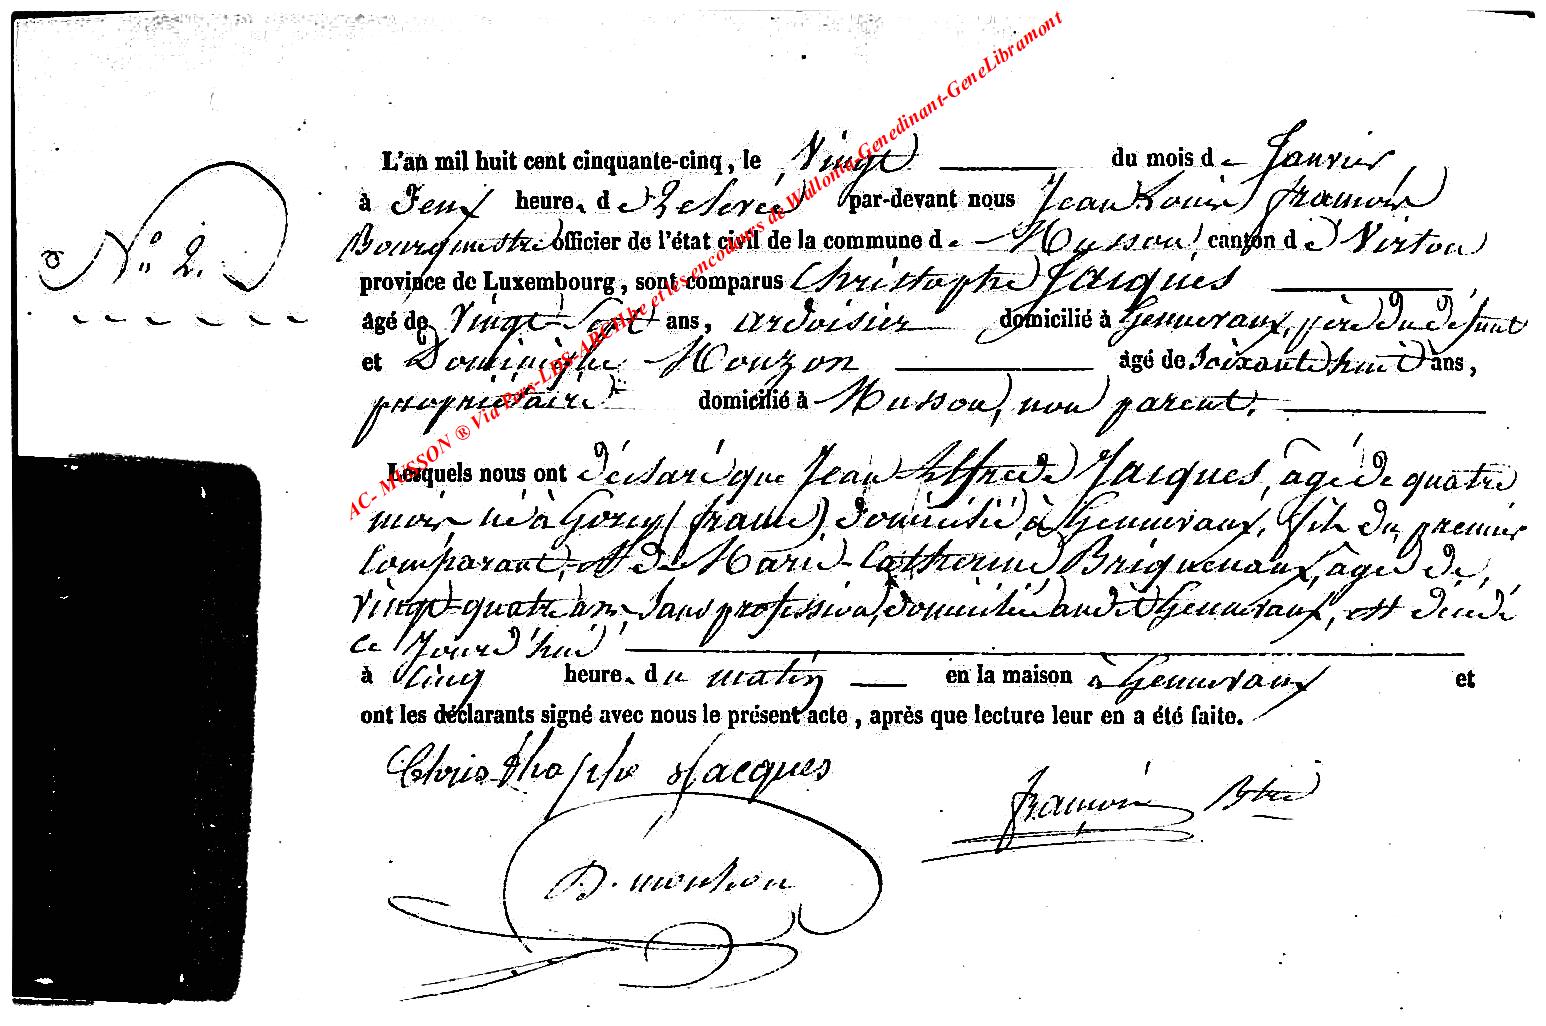 N.° 2.
L'an mil huit cent cinquante-cinq, le Vingt du mois de Janvier
à Deux heures de Relevée par-devant nous Jean Louis françois
Bourgmestre officier de l'état civil de la commune de Musson canton de Virton
province de Luxembourg, sont comparus Christophe Jacques
âgé de Vingt-Sept ans, ardoisier domicilié à Gennevaux, père du défunt
et Dominique Mouzon âgé de Soixante huit ans,
propriétaire domicilié à Musson, non parent.
Lesquels nous ont déclaré que Jean Alfrede Jacques, âgé de quatre
mois né à Gorcy (france) domicilié à Gennevaux, fils du premier
Comparant, et de Marie-Catherine Briquemaux, agée de
Vingt-quatre ans, Sans profession, domiciliée audit Gennevaux, est décédé
ce Jourd'hui
à Cinq heures du matin en la maison à Gennevaux et
ont les déclarants signé avec nous le présent acte, après que lecture leur en a été faite.
Christhophe Jacques
françois Btre
D. mouson
AC- MUSSON ® Via Pers-LDS-ARCH.be et les encodeurs de Wallonia-Genedinant-GeneLibramont